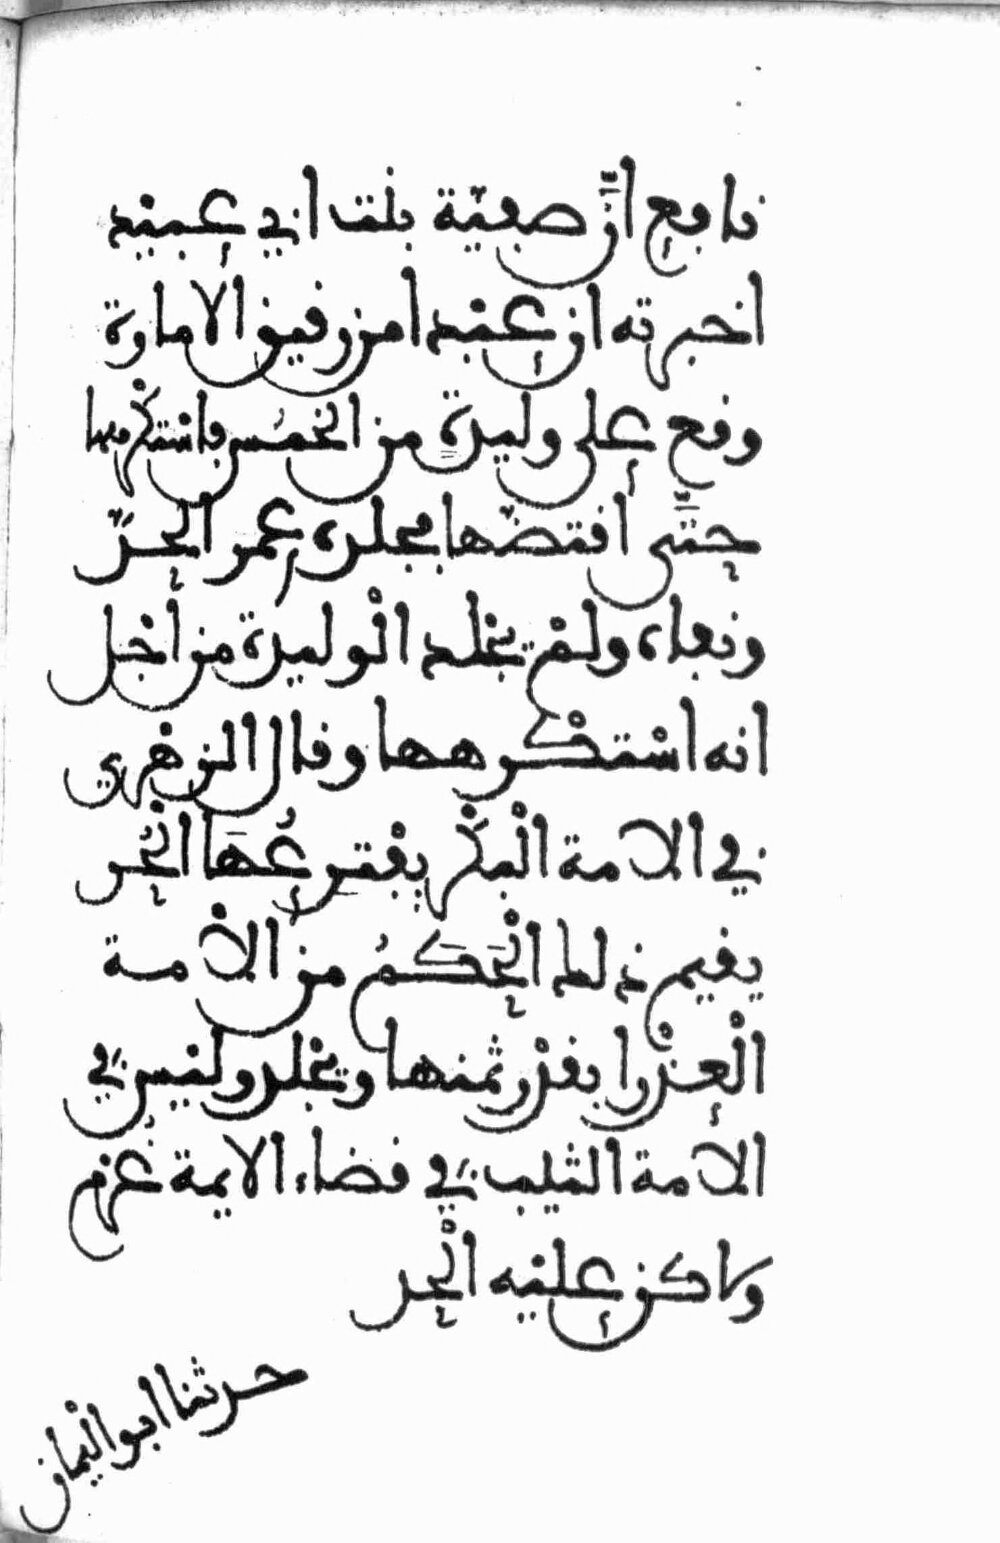 نافع انّ صفيّة بنت ابي عبيد
اخبرته ان عبدا من رفيق الامارة
وقع على وليدة من الخمُس فاستكرهها
حتّى افتضّها فجلده عمر الحدّ
ونفاه ولمْ يجلد الْوليدة من أجْل
انه اسْتكْرهها وقال الزهْري
في الامة الْبكْر يفْترعُهَا الْحُر
يقيم ذلك الْحَكَمُ من الأمة
الْعذْرا بقدْر ثمنها ويجْلد وليْس في
الامة الثيب في قضاء الايمة غُرْم
ولاكن عليْه الْحد
حدثنا ابو اليمان